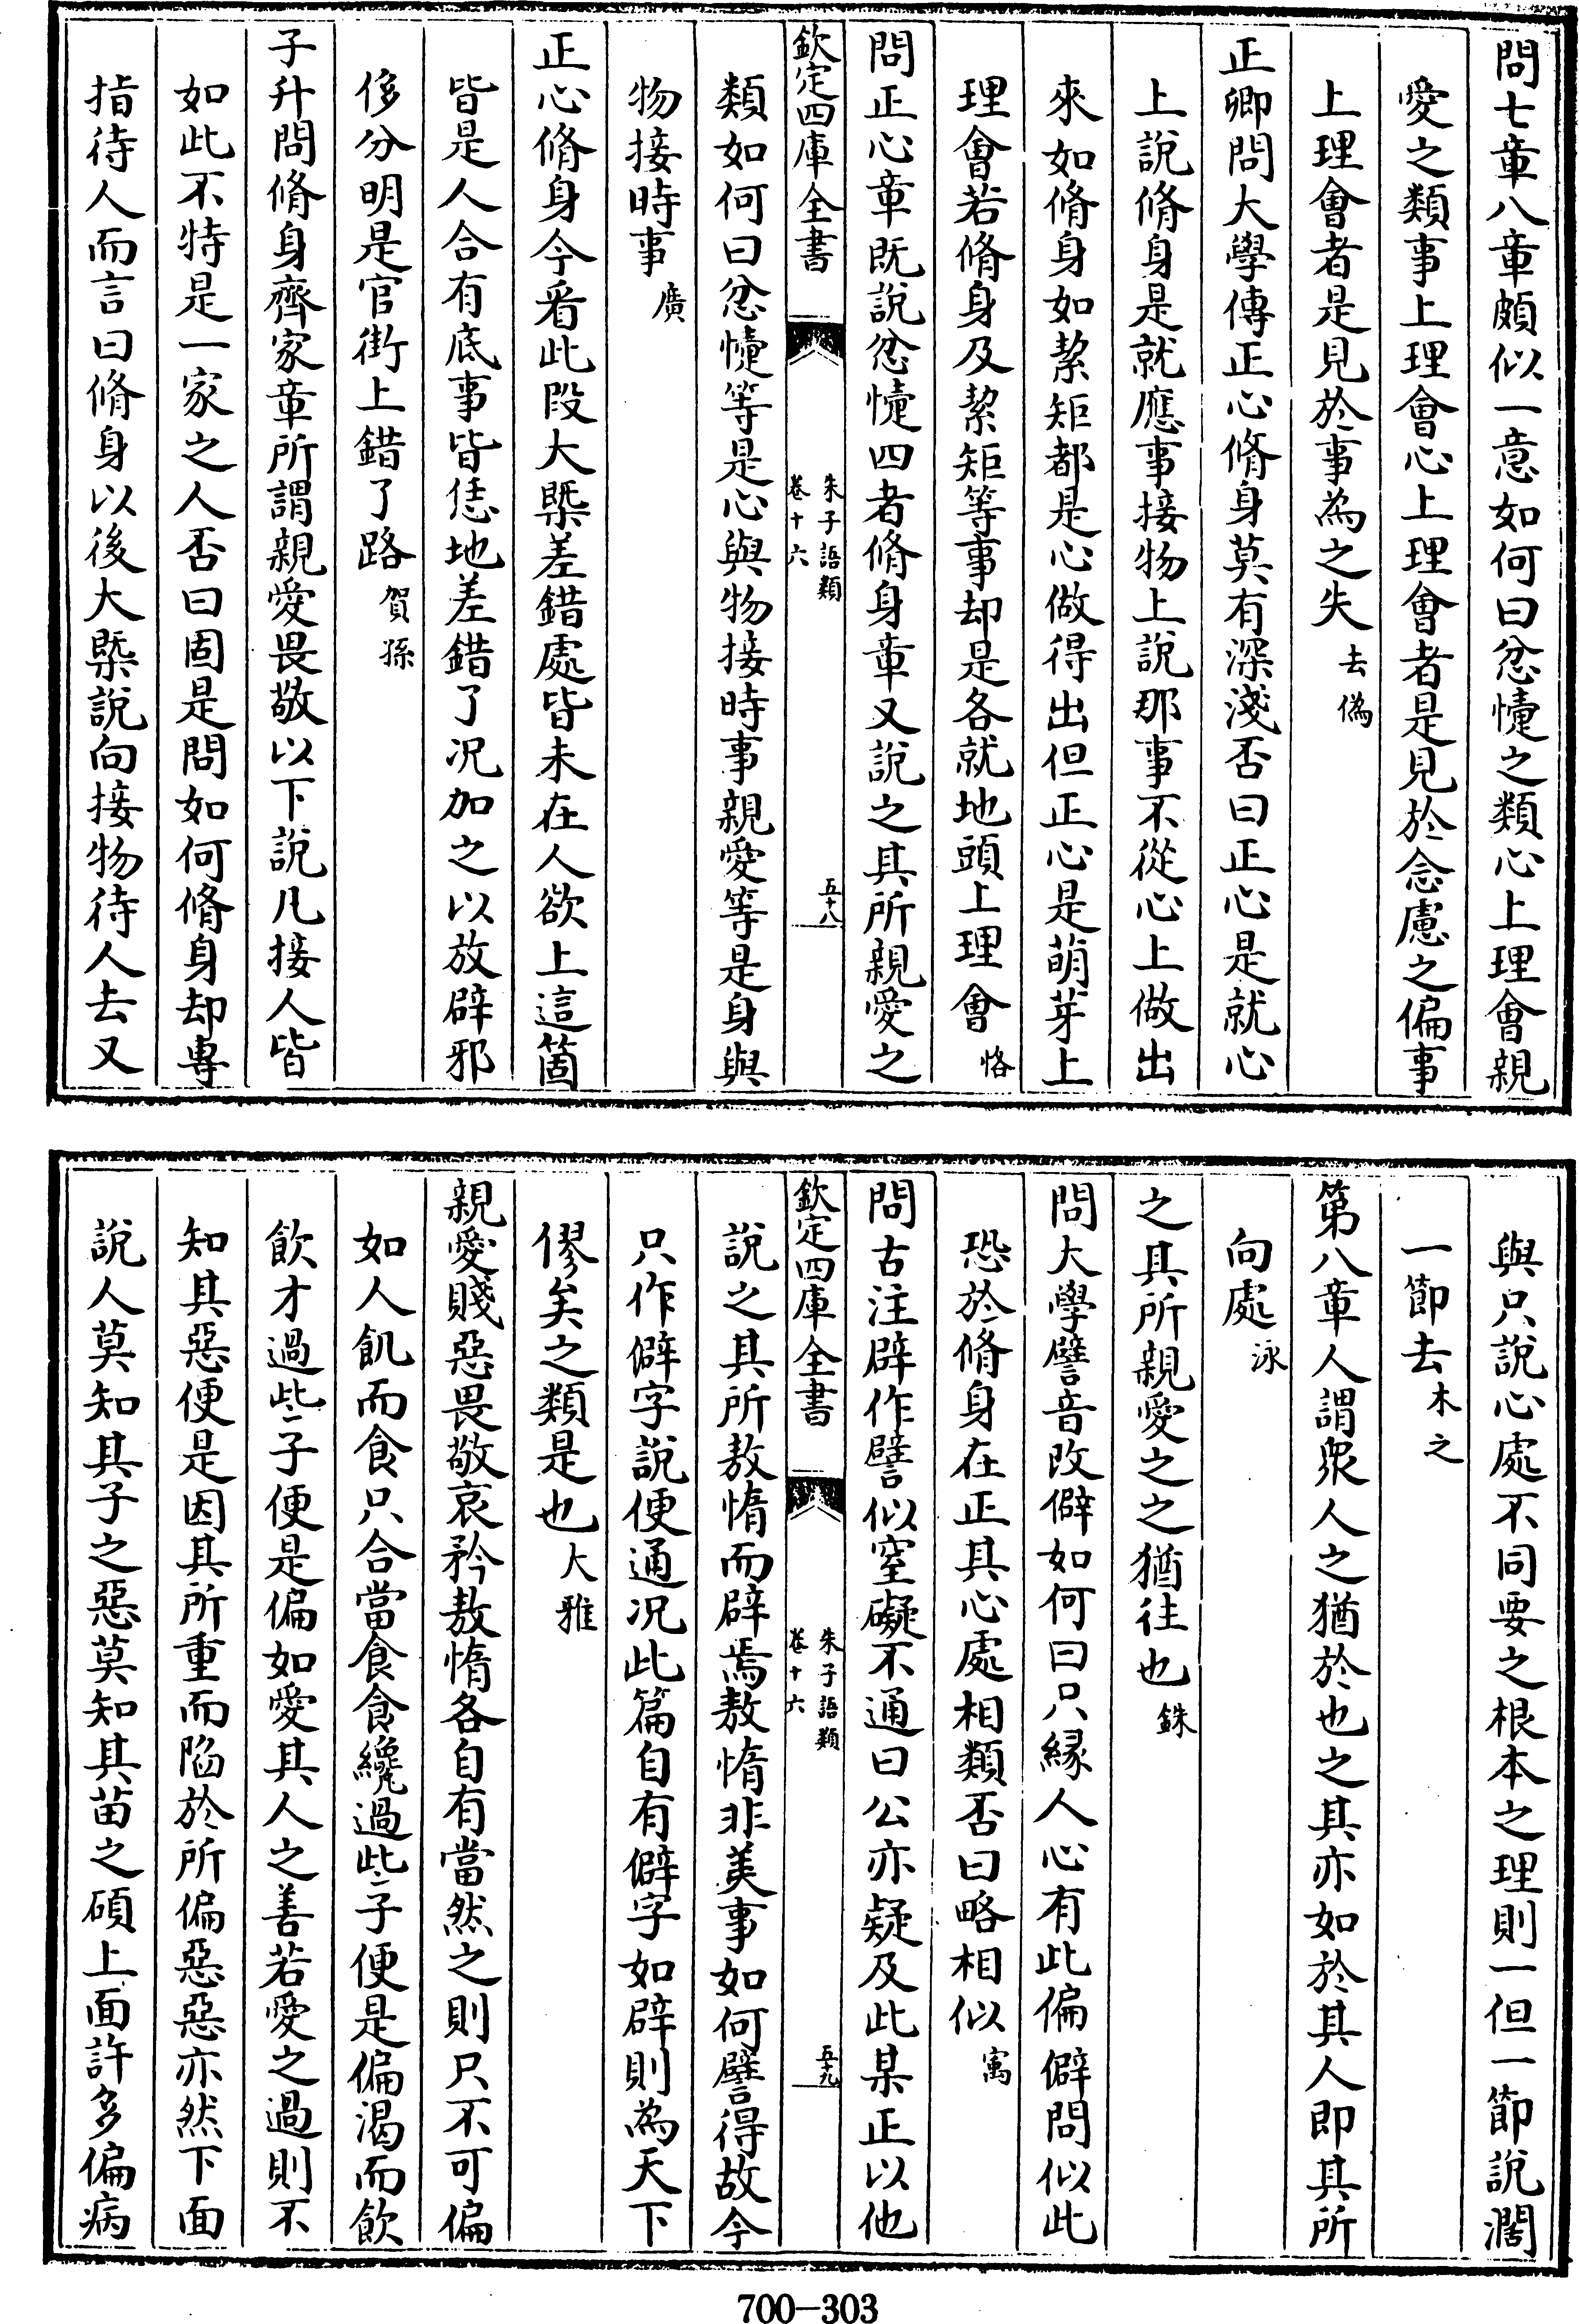 問七章八章頗似一意如何曰忿懥之類心上理會親
愛之類事上理會心上理會者是見於念慮之偏事
上理會者是見於事為之失去偽
正卿問大學傳正心脩身莫有深淺否曰正心是就心
上說脩身是就應事接物上說那事不從心上做出
來如脩身如絜矩都是心做得出但正心是萌芽上
理會若脩身及絜矩等事却是各就地頭上理會恪
問正心章既說忿懥四者脩身章又說之其所親愛之
欽定四庫全書
朱子語類
卷十六
五十八
類如何曰忿懥等是心與物接時事親愛等是身與
物接時事廣
正心脩身今看此段大槩差錯處皆未在人欲上這箇
皆是人合有底事皆恁地差錯了况加之以放辟邪
侈分明是官街上錯了路賀孫
子升問脩身齊家章所謂親愛畏敬以下說凡接人皆
如此不特是一家之人否曰固是問如何脩身却專
指待人而言曰脩身以後大槩說向接物待人去又
與只說心處不同要之根本之理則一但一節說濶
一節去木之
第八章人謂衆人之猶於也之其亦如於其人即其所
向處泳
之其所親愛之之猶往也銖
問大學譬音改僻如何曰只緣人心有此偏僻問似此
恐於脩身在正其心處相類否曰略相似㝢
問古注辟作譬似窒礙不通曰公亦疑及此某正以他
欽定四庫全書
朱子語類
卷十六
五十九
說之其所敖惰而辟焉敖惰非美事如何譬得故今
只作僻字說便通况此篇自有僻字如辟則為天下
僇矣之類是也大雅
親愛賤惡畏敬哀矜敖惰各自有當然之則只不可偏
如人飢而食只合當食食纔過些子便是偏渴而飲
飲才過些子便是偏如愛其人之善若愛之過則不
知其惡便是因其所重而陷於所偏惡惡亦然下面
說人莫知其子之惡莫知其苗之碩上面許多偏病
700-303